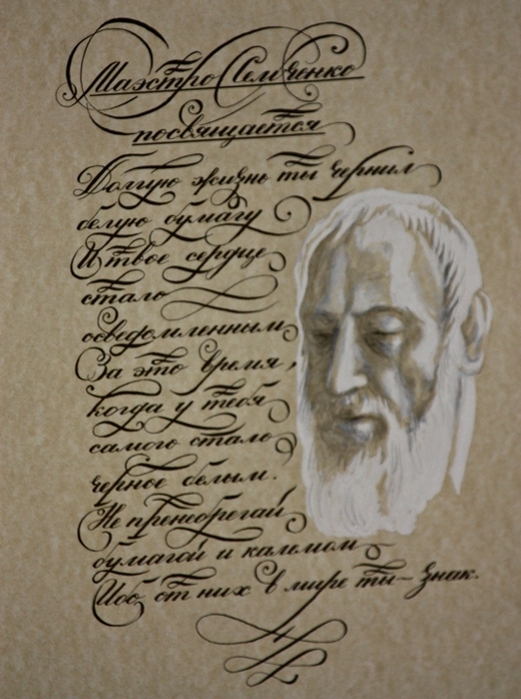 Маэстро Семченко
посвящается
Долгую жизнь ты чернил
белую бумагу
И твое сердце
стало
осведомленным
За это время,
когда у тебя
самого стало
черное белым.
Не пренебрегай
бумагой и каламом
Ибо от них в мире ты – знак.